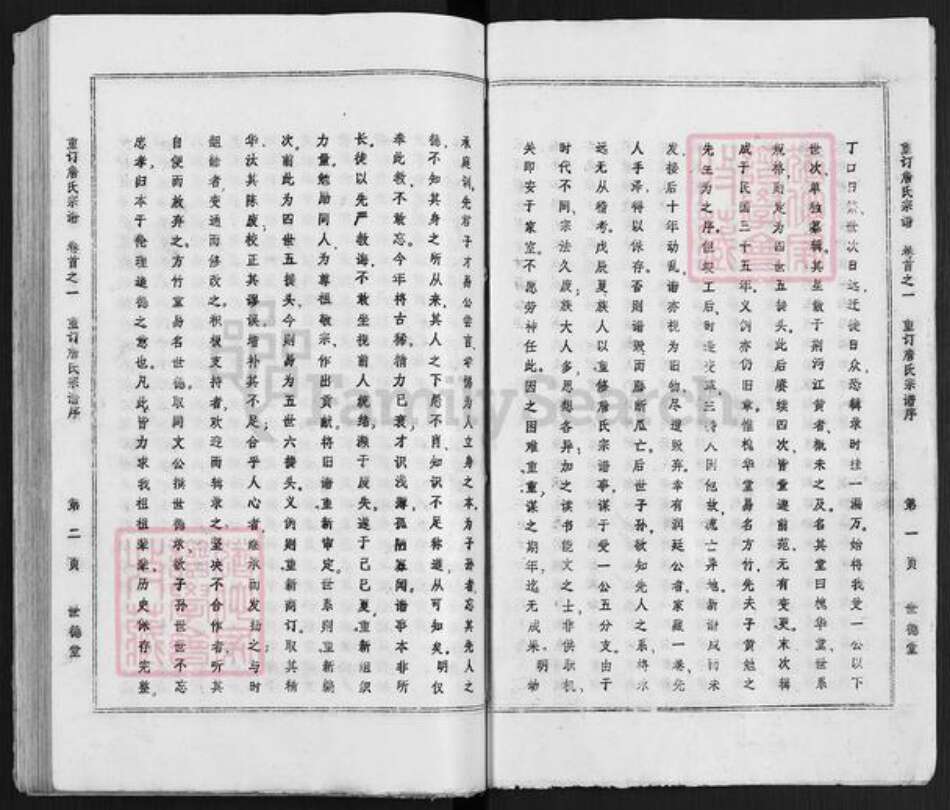 重订詹氏宗谱 卷首之一 重订詹氏宗谱序 第一页 世德堂
丁口日繁世次日远迁徙日众恐辑录时挂一漏万始将我受一公以下
世次、单独纂辑其星散于荆河江黄者概未之及名其堂曰槐华堂世系
规格则定为四世五接头此后赓续四次皆重遵前范无有变更末次辑
成于民国三十五年义例亦仍旧章惟槐华堂易名方竹先夫子黄勉之
先生为之序但竣工后时逢变革三诗人则他故流亡异地新谱成而未
发接后十年动乱谱亦视为旧物尽遭毁弃幸有润廷公者家藏一卷先
人手泽得以保存否则谱毁而融断瓜亡后世子孙欲知先人之系将永
远无从稽考戊辰夏族人以重修詹氏宗谱事谋于受一公五分支由于
时代不同宗法久废族大人多思想各异加之读书能文之士非供职机
关即安于家室不愿劳神任此因之困难重重谋之期年迄无成果明幼
承庭训先君子才易公尝言孝悌为人立身之本为子孙者忘其先人之
德不知其身之所从来其人之下愚不肖知识不足称道从可知矣明仅
奉此教不敢忘今年将古稀精力已衰才识浅薄孤陋寡闻谱事本非所
长徒以先严教诲不敢坐视前人统绪濒于废失遂于己巳夏重新组织
力量勉励同人为尊祖敬宗作出贡献将旧谱重新审定世系则重新编
次前此为四世五接头今则易为五世六接头义例则重新商订取其精
华汰其陈废校正其谬误增补其不足合乎人心者继承而发扬之与时
龃龉者变通而修改之积极支持者欢迎而辑录之坚决不合作者听其
自便而放弃之方竹堂易名世德取同文公撰世德求欲子孙世世不忘
忠孝归本于伦理道德之意也凡此皆力求我祖祖辈辈历史保存完整
重订詹氏宗谱 卷首之一 重订詹氏宗谱序 第二页 世德堂